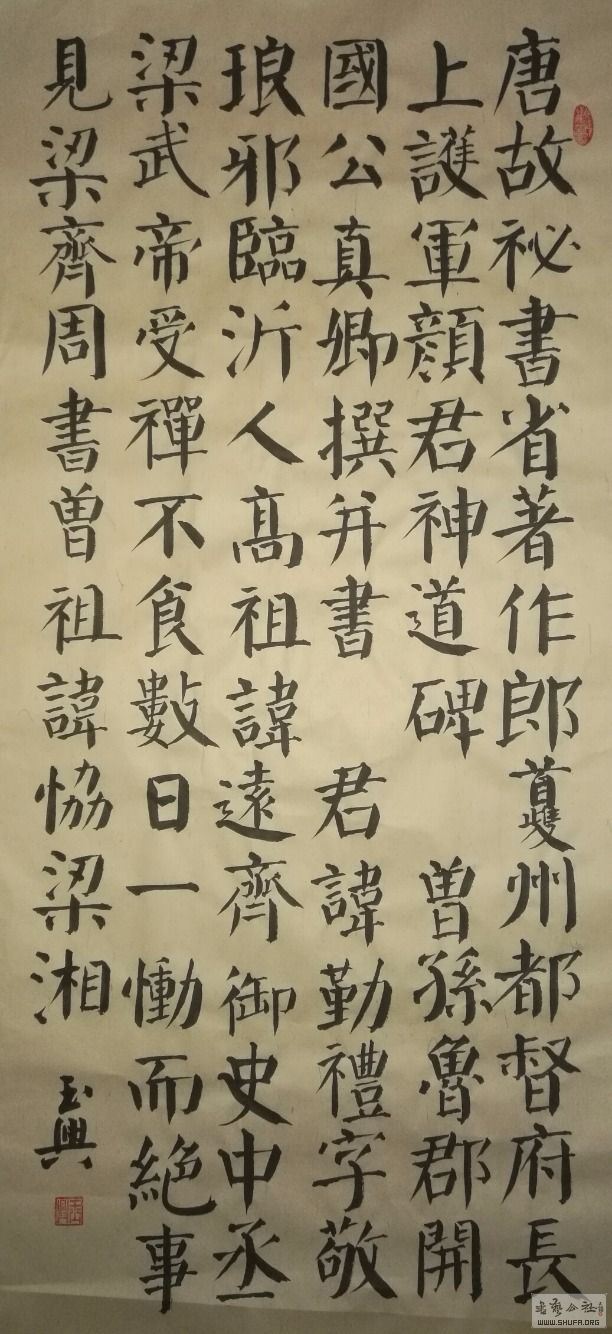 唐故祕書省著作郎夔州都督府長
上護軍顔君神道碑 曽孫魯郡開
國公真卿撰并書 君諱勤禮字敬
琅邪臨沂人髙祖諱逺齊御史中丞
梁武帝受禪不食數日一慟而絶事
見梁齊周書曽祖諱恊梁湘
玉興
書藝公社
WWW.SHUFA.ORG